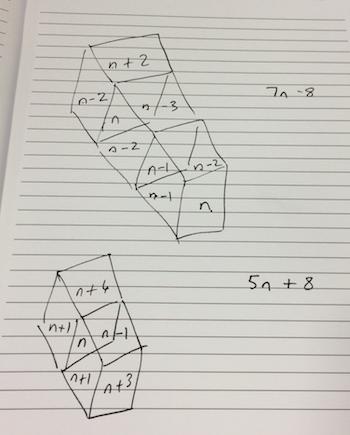 n + 2
7n - 8
n-2
n
n-3
n-2
n-1
n-2
n-1
n
n+4
5n + 8
n+1
n
n-1
n+1
n+3